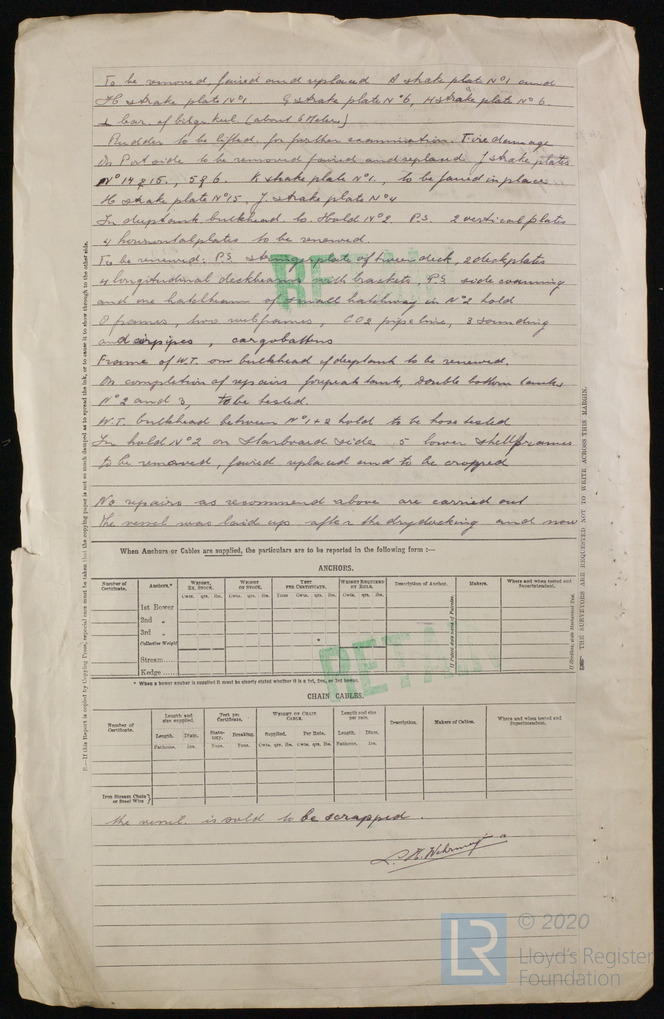 To be removed, faired and replaced A strake plate Nº1 and
H strake plate Nº1 G strake plate Nº6, H strake plate Nº6.
1 bar. of bilge keel (about 6 Meters)
Rudder to be lifted for further examination. Fire damage
On Port side to be removed faired and replaced J strake plates
Nº 14 & 15, 5 & 6. K strake plate Nº1., to be faired in place
H strake plate Nº15, J. strake plate Nº4
In deeptank bulkhead to Hold Nº2 P.S. 2 vertical plates
4 horizontal plates to be renewed.
To be renewed: P.S. stringerplate of tweendeck, 2 deckplates
4 longitudinal deckbeams with brackets, P.S. side coaming
and one hatchbeam of small hatchway in Nº2 hold
8 frames, two webframes, CO2 pipeline, 3 sounding
and airpipes, cargobattens
Frame of W.T. on bulkhead of deeptank to be renewed.
On completion of repairs forepeak tank, double bottom tanks
Nº2 and 3, to be tested.
W.T. bulkhead between Nº1+2 hold to be hose tested
In hold Nº2 on Starboard side 5 lower shell frames
to be removed, faired replaced and to be cropped
No repairs as recommend above are carried out
The vessel was laid up after the drydocking and now
When Anchors or Cables are supplied, the particulars are to be reported in the following form :—
ANCHORS.
Number of Certificate. Anchors.* Weight, Ex. Stock. Weight of Stock. Test per Certificate. Weight Required by Rule. Description of Anchor. Makers. Where and when tested and Superintendent.
Cwts. qrs. lbs. Cwts. qrs. lbs. Tons Cwts. qrs. lbs. Cwts. qrs. lbs.
1st Bower
2nd "
3rd "
Collective Weight
Stream......
Kedge......
* When a bower anchor is supplied it must be clearly stated whether it is a 1st, 2nd, or 3rd bower.
CHAIN CABLES.
Number of Certificate. Length and size supplied. Test per Certificate. Weight of Chain Cable. Length and size per rule. Description. Makers of Cables. Where and when tested and Superintendent.
Length. Diam. Statutory. Breaking. Supplied. Per Rule. Length. Diam.
Fathoms. Ins. Tons. Tons. Cwts. qrs. lbs. Cwts. qrs. lbs. Fathoms. Ins.
Iron Stream Chain or Steel Wire
the vessel is sold to be scrapped.
RETAIN
RETAIN
THE SURVEYORS ARE REQUESTED NOT TO WRITE ACROSS THIS MARGIN.
—If this Report is copied by Copying Press, especial care must be taken that the copying paper is not so much damped as to spread the ink, or to cause it to show through to the other side.
LR
© 2020
Lloyd's Register
Foundation